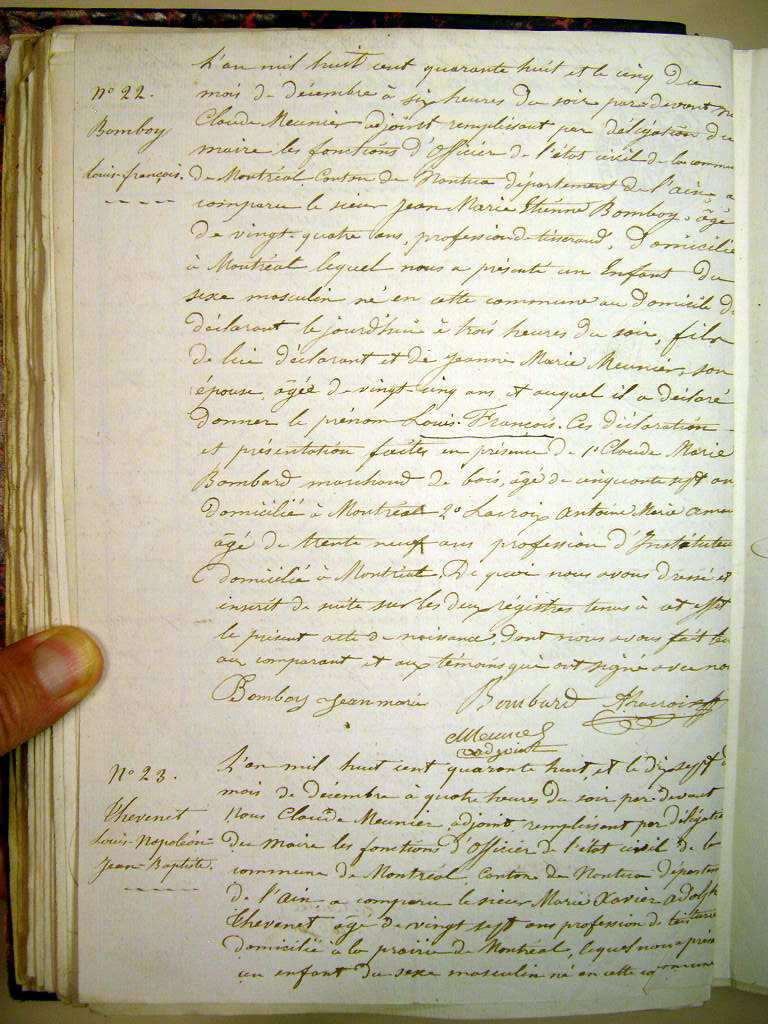 N° 22.
Bomboy
Louis-françois.
L'an mil huit cent quarante huit et le cinq du
mois de décembre à six heures du soir par devant
Claude Meunier adjoint remplissant par délégation du
maire les fonctions d'Officier de l'état civil de la commu
de Montréal Canton de Nantua département de l'ain, a
comparu le sieur Jean Marie Etienne Bomboy, âgé
de vingt-quatre ans, profession de tisserand, domicilié
à Montréal lequel nous a présenté un Enfant du
sexe masculin né en cette commune au domicile d
déclarant le jourd'hui à trois heures du soir, fils
de lui déclarant et de Jeanne Marie Meunier, son
épouse, âgée de vingt-cinq ans et auquel il a déclaré
donner le prénom Louis-François. Ces déclaration
et présentation faites en présence de 1° Claude Marie
Bombard marchand de bois, âgé de cinquante sept an
domicilié à Montréal 2° Lacroix Antoine Marie
âgé de trente neuf ans profession d'Instituteu
domicilié à Montréal. De quoi nous avons dressé et
inscrit de suite sur les deux régistres tenus à cet effet
le présent acte de naissance, dont nous avons fait lec
au comparant et aux témoins qui ont signé avec no
Bomboy Jeanmarie Bombard Alacroix
Meunier
adjoint
N° 23.
Thevenet
Louis-Napoléon-
Jean-Baptiste.
L'an mil huit cent quarante huit, et le dix sept d
mois de décembre à quatre heures du soir par-devant
Nous Claude Meunier, adjoint, remplissant par délégatio
du maire les fonctions d'Officier de l'état civil de la
commune de Montréal Canton de Nantua départem
de l'ain, a comparu le sieur Marie Xavier adolph
Thevenet âgé de vingt sept ans profession de
domicilié à la prairie de Montréal, lequel nous a prése
un enfant du sexe masculin né en cette commune